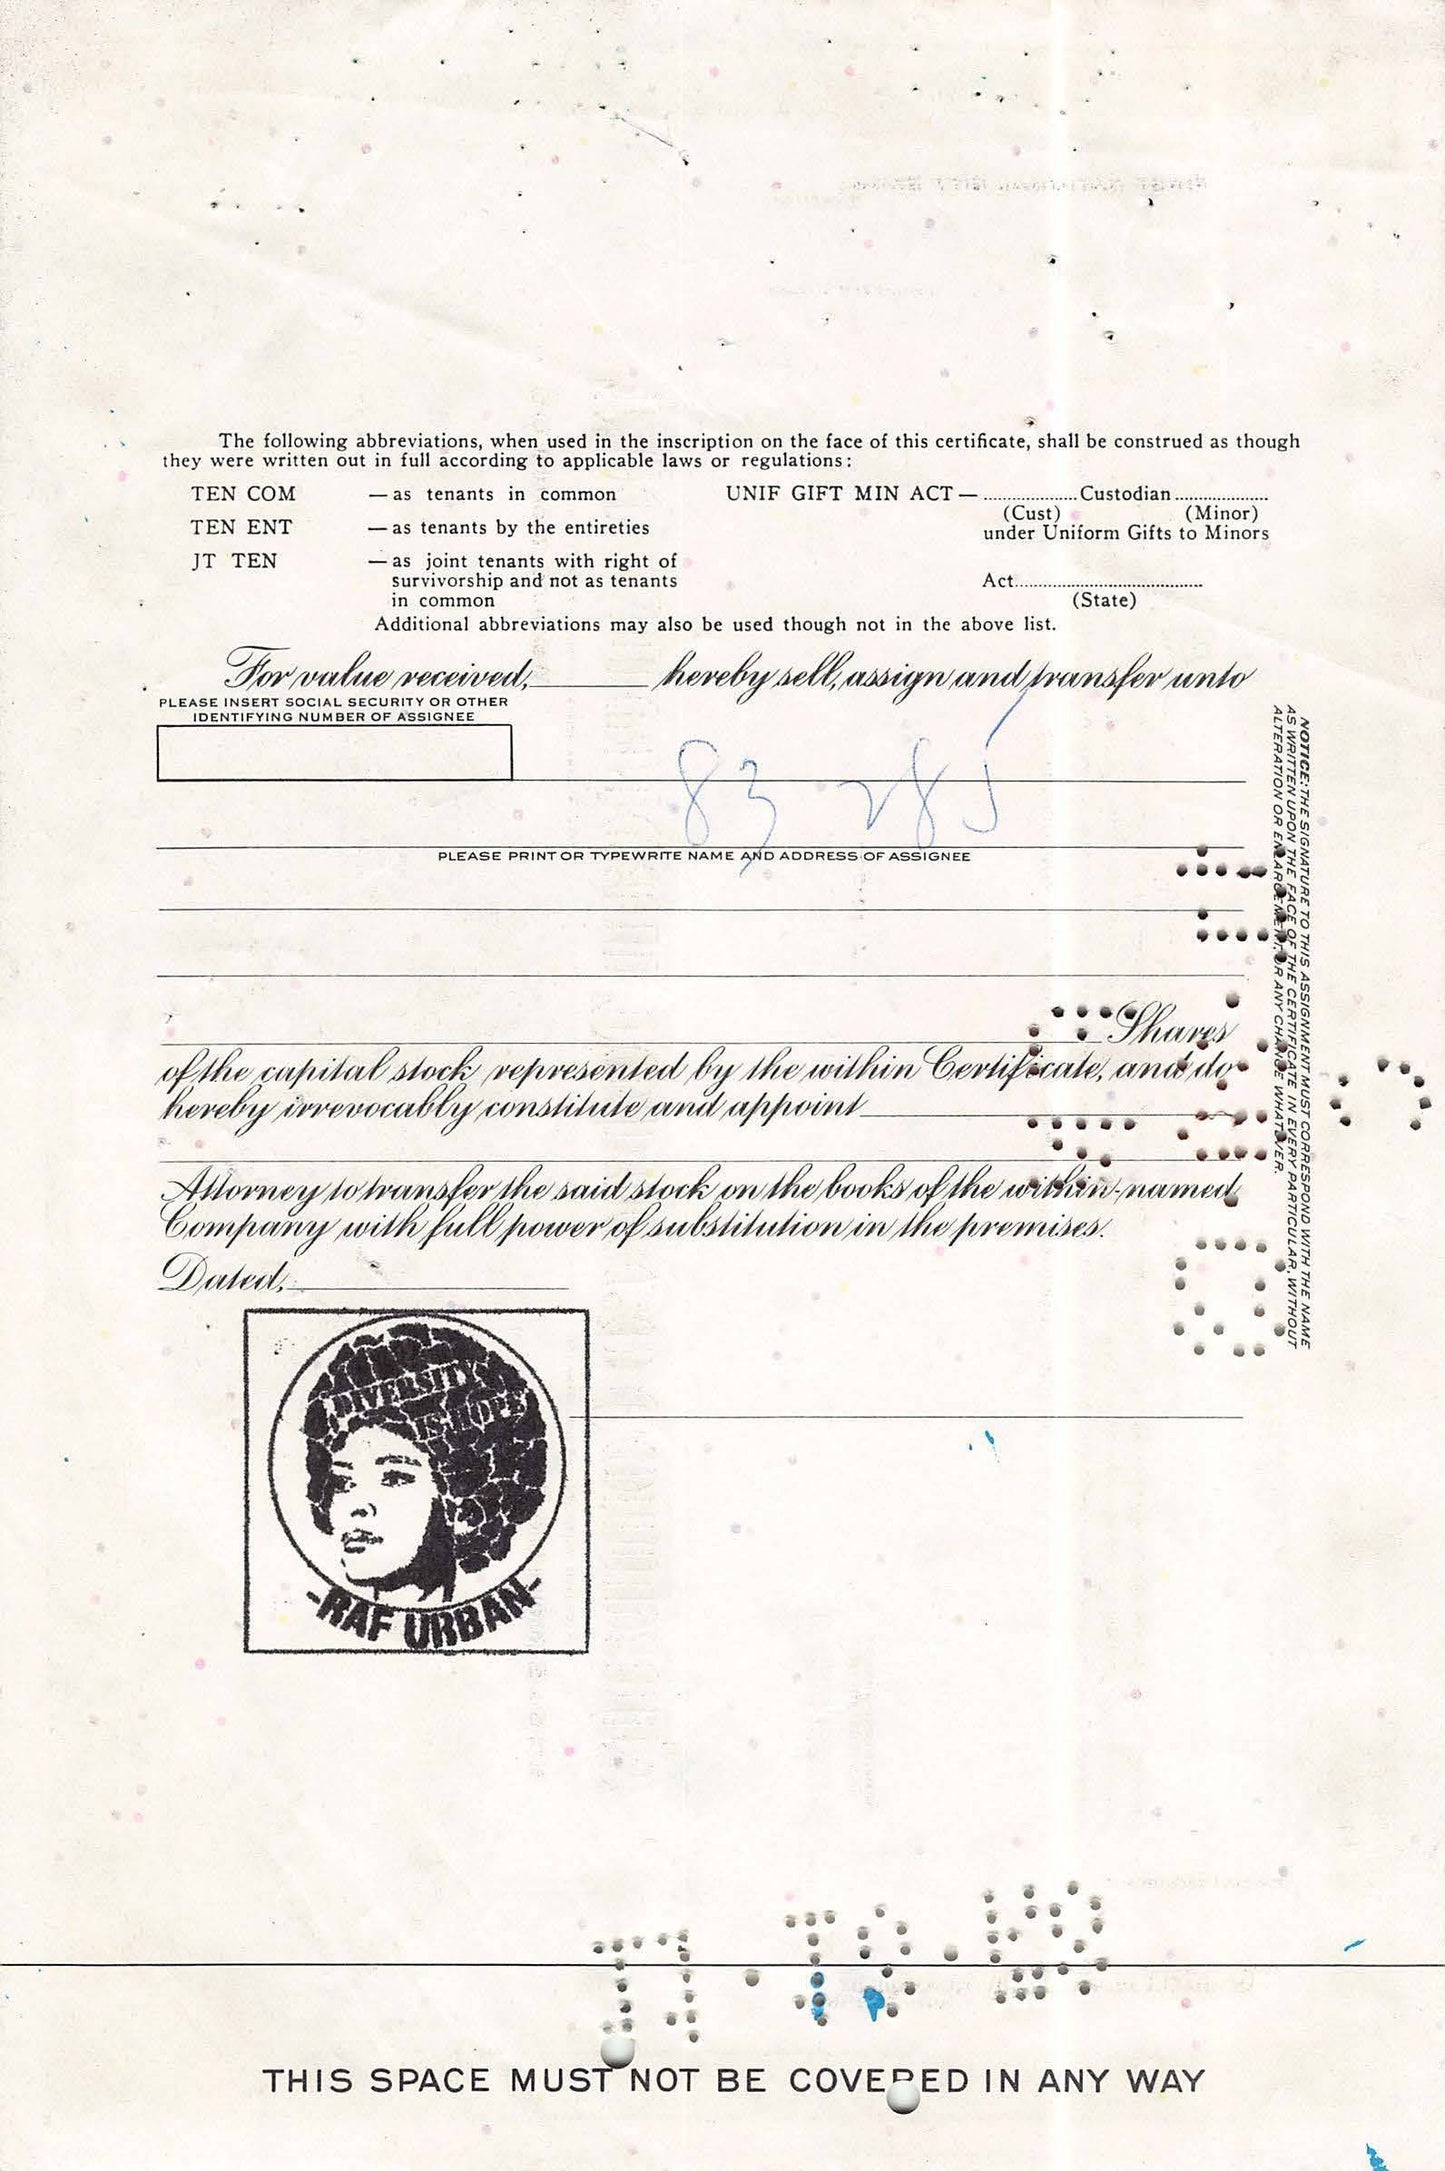 The following abbreviations, when used in the inscription on the face of this certificate, shall be construed as though
they were written out in full according to applicable laws or regulations:
TEN COM — as tenants in common
TEN ENT — as tenants by the entireties
JT TEN — as joint tenants with right of
survivorship and not as tenants
in common
UNIF GIFT MIN ACT — .................... Custodian ....................
(Cust) (Minor)
under Uniform Gifts to Minors
Act........................................
(State)
Additional abbreviations may also be used though not in the above list.
For value received, __________ hereby sell, assign and transfer unto
PLEASE INSERT SOCIAL SECURITY OR OTHER
IDENTIFYING NUMBER OF ASSIGNEE
83 285
PLEASE PRINT OR TYPEWRITE NAME AND ADDRESS OF ASSIGNEE
Shares
of the capital stock represented by the within Certificate, and do
hereby irrevocably constitute and appoint
Attorney to transfer the said stock on the books of the within-named
Company with full power of substitution in the premises.
Dated,
NOTICE: THE SIGNATURE TO THIS ASSIGNMENT MUST CORRESPOND WITH THE NAME
AS WRITTEN UPON THE FACE OF THE CERTIFICATE IN EVERY PARTICULAR, WITHOUT
ALTERATION OR ENLARGEMENT, OR ANY CHANGE WHATEVER.
DIVERSITY
IS HOPE
-RAF URBAN-
THIS SPACE MUST NOT BE COVERED IN ANY WAY